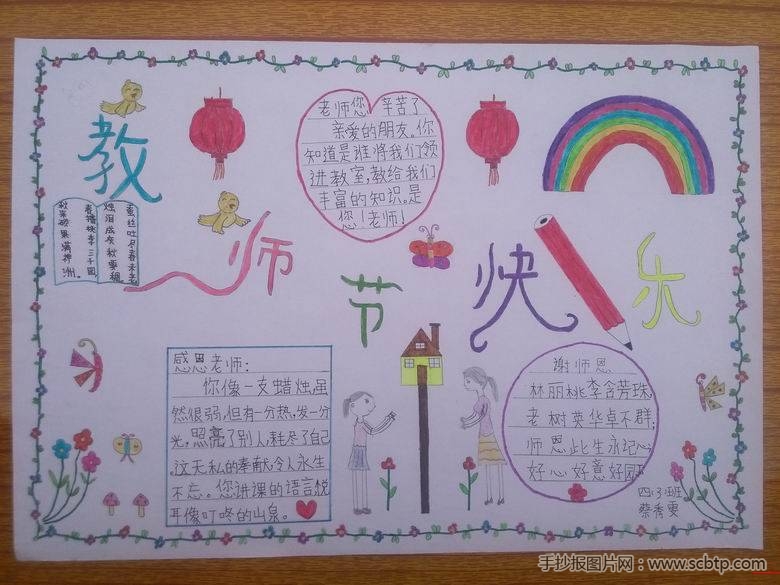 教师节快乐
老师您 辛苦了
亲爱的朋友。你
知道是谁将我们领
进教室,教给我们
丰富的知识。是
您!老师!
蚕丝吐尽春未老
烛泪成灰秋更稠
春播桃李三千圃
秋来硕果满神州。
感恩老师:
你像一支蜡烛,虽
然很弱,但有一分热,发一分
光,照亮了别人,耗尽了自己
.这无私的奉献,令人永生
不忘。您讲课的语言,悦
耳像叮咚的山泉。
谢师恩
林丽桃李含芳珠,
老树英华卓不群;
师恩此生永记心
好心好意好
四、3班
蔡秀雯
手抄报图片网：www.scbtp.com